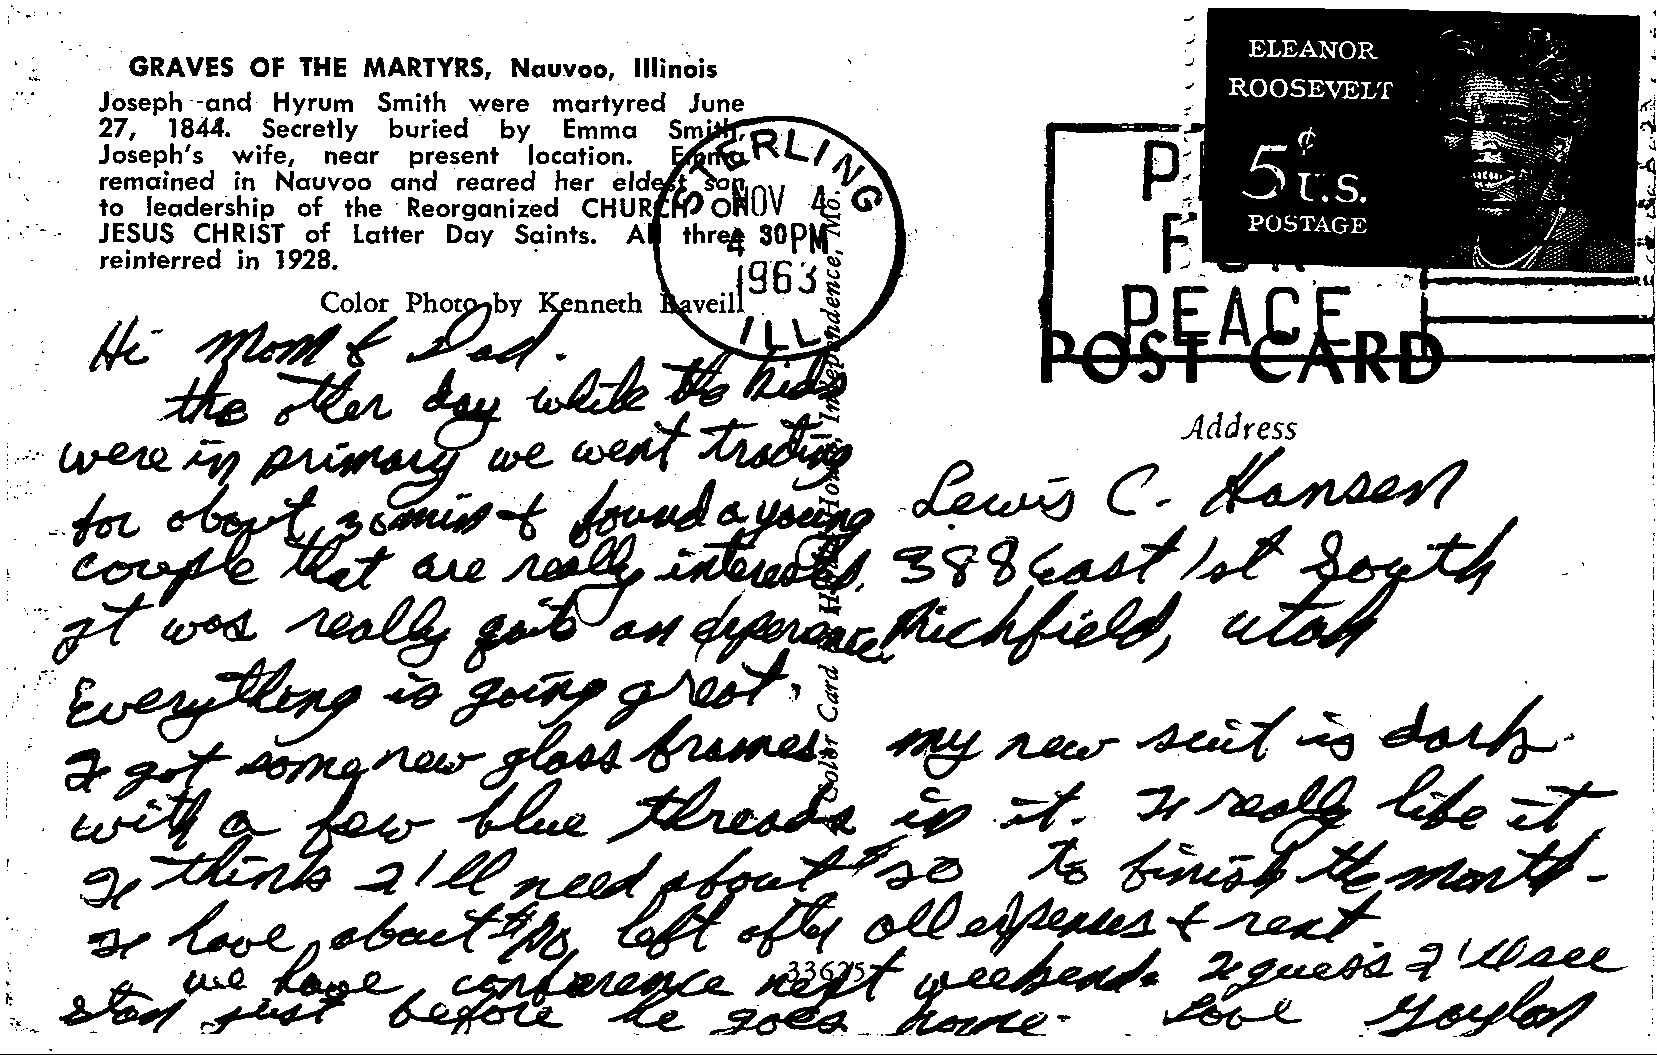 GRAVES OF THE MARTYRS, Nauvoo, Illinois
Joseph and Hyrum Smith were martyred June
27, 1844. Secretly buried by Emma Smith,
Joseph's wife, near present location. Emma
remained in Nauvoo and reared her eldest son
to leadership of the Reorganized CHURCH OF
JESUS CHRIST of Latter Day Saints. All three
reinterred in 1928.
Color Photo by Kenneth Raveill
STERLING
NOV 4
4 30PM
1963
ILL
ELEANOR
ROOSEVELT
5¢ U.S.
POSTAGE
PEACE
POST CARD
Address
Lewis C. Hansen
388 East 1st South
Richfield, Utah
Color Card Independence, Mo.
Hi Mom & Dad.
the other day while the kids
were in primary we went tracting
for about 30 min & found a young
couple that are really interested.
It was really quite an experience.
Everything is going great.
I got some new glass frames. my new suit is dark
with a few blue threads in it. I really like it.
I think I'll need about $ to finish the month-
I have about $ left after all expenses & rent
we have conference next weekend. I guess I'll see
Stan just before he goes home. Love Gaylan
33625